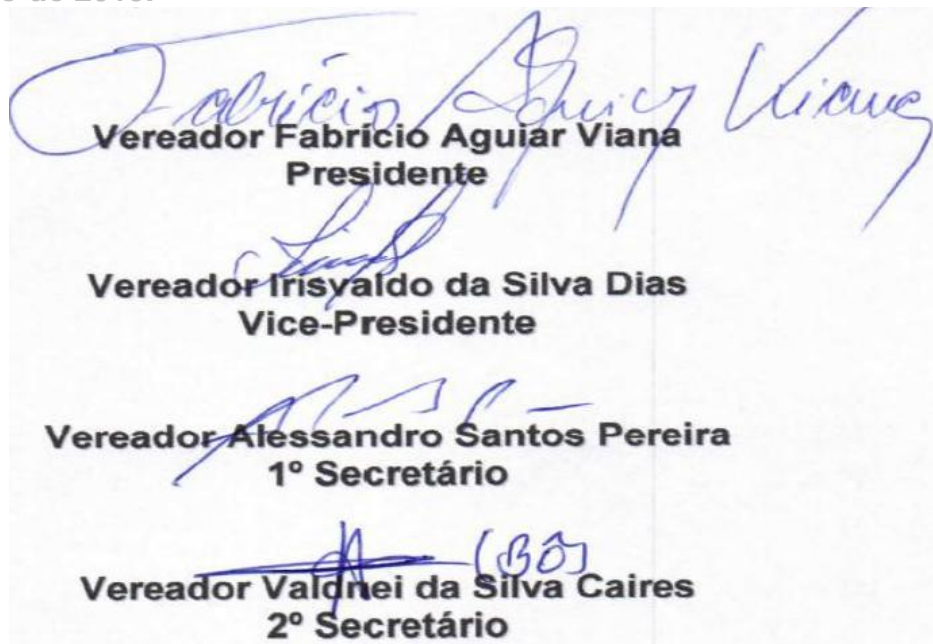 Fabrício Aguiar Viana
Vereador Fabrício Aguiar Viana
Presidente
Vereador Irisvaldo da Silva Dias
Vice-Presidente
Vereador Alessandro Santos Pereira
1º Secretário
(BÔ)
Vereador Valdnei da Silva Caires
2º Secretário